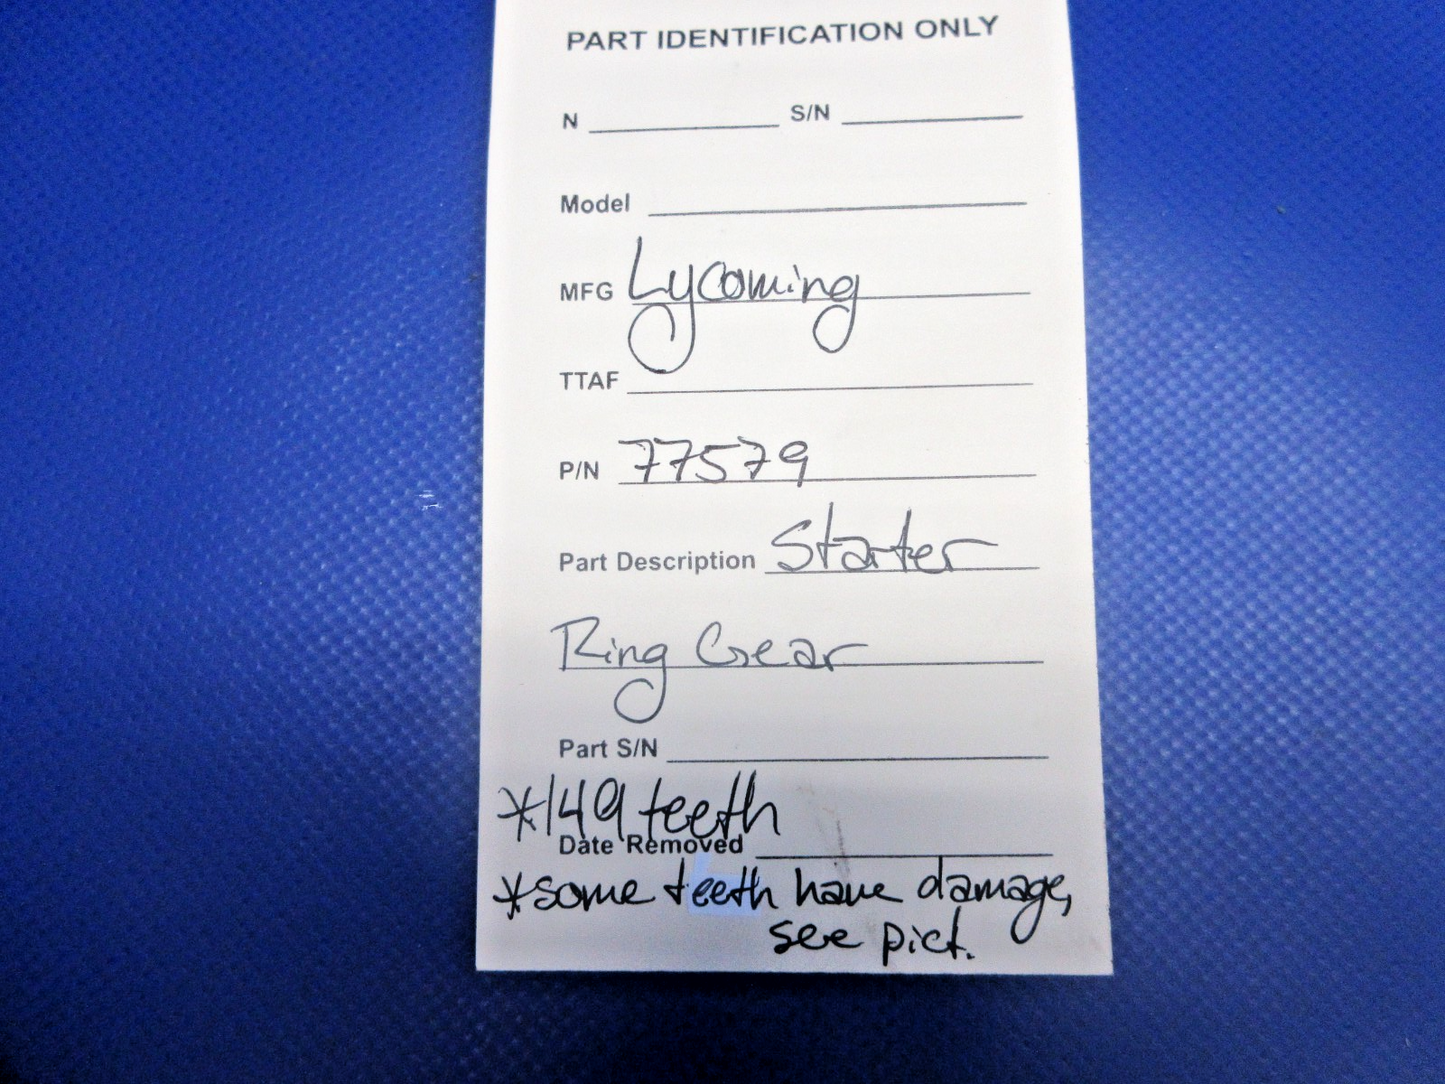 PART IDENTIFICATION ONLY
N S/N
Model
MFG Lycoming
TTAF
P/N 77579
Part Description Starter
Ring Gear
Part S/N
*149 teeth
Date Removed
*some teeth have damage,
see pict.